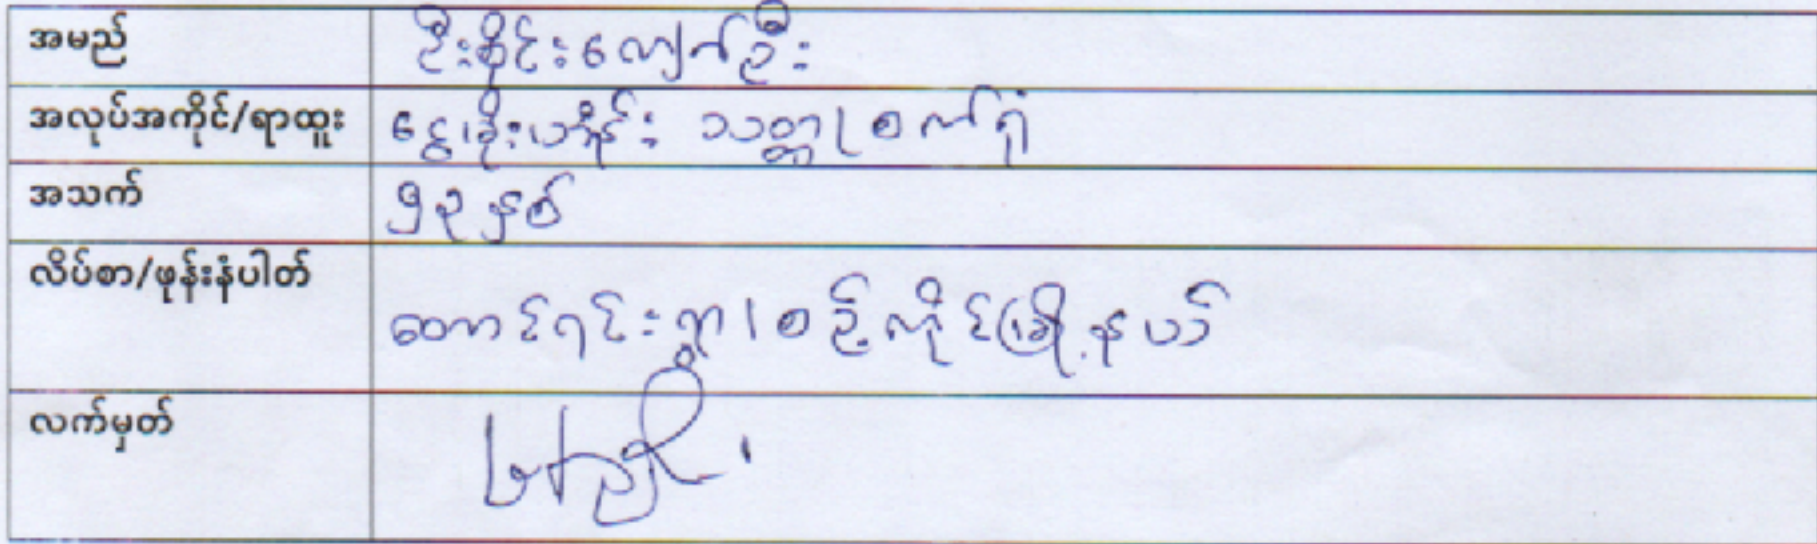 အမည် ဦးစိုင်းကျော်ဦး
အလုပ်အကိုင်/ရာထူး ငွေခိုးပန်း သတ္တုစက်ရုံ
အသက် ၅၃ နှစ်
လိပ်စာ/ဖုန်းနံပါတ် တောင်ရင်းရွာ၊ စဉ့်ကိုင်မြို့နယ်
လက်မှတ်